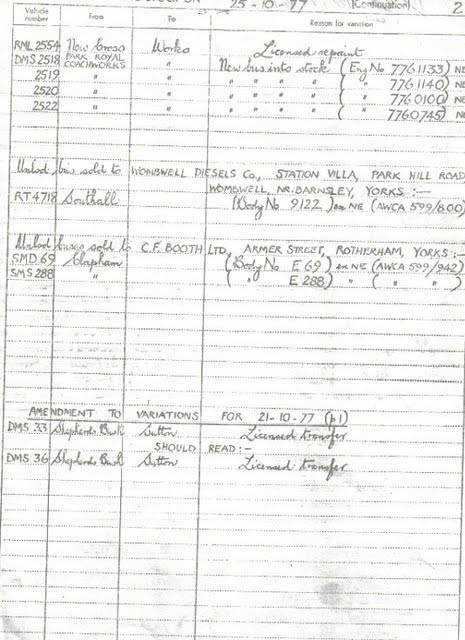 STOCK ON 25-10-77 (Continuation) 2
Vehicle number From To Reason for variation
RML 2554 New Cross Works Licensed repaint
DMS 2518 PARK ROYAL COACHWORKS New bus into stock (Eng No 7761133) NE
2519 " " " " " ( " 7761140) NE
2520 " " " " " ( " 7760100) NE
2522 " " " " " ( " 7760745) NE
Unlcd bus sold to WOMBWELL DIESELS Co., STATION VILLA, PARK HILL ROAD
WOMBWELL, NR. BARNSLEY, YORKS :—
RT 4718 Southall (Body No 9122) ex NE (AWCA 599/800)
Unlcd buses sold to C.F. BOOTH LTD, ARMER STREET, ROTHERHAM, YORKS :—
SMD 69 Clapham (Body No E 69) ex NE (AWCA 599/942)
SMS 288 " ( " E 288) " ( " " )
AMENDMENT TO VARIATIONS FOR 21-10-77 (p1)
DMS 33 Shepherds Bush Sutton Licensed transfer
SHOULD READ :—
DMS 36 Shepherds Bush Sutton Licensed transfer